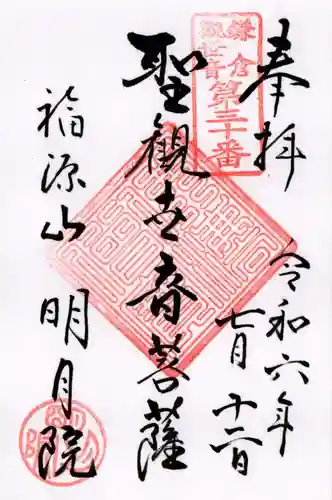 奉拝
令和六年
七月十二日
鎌倉
観世音
第三十番
聖観世音菩薩
福源山 明月院